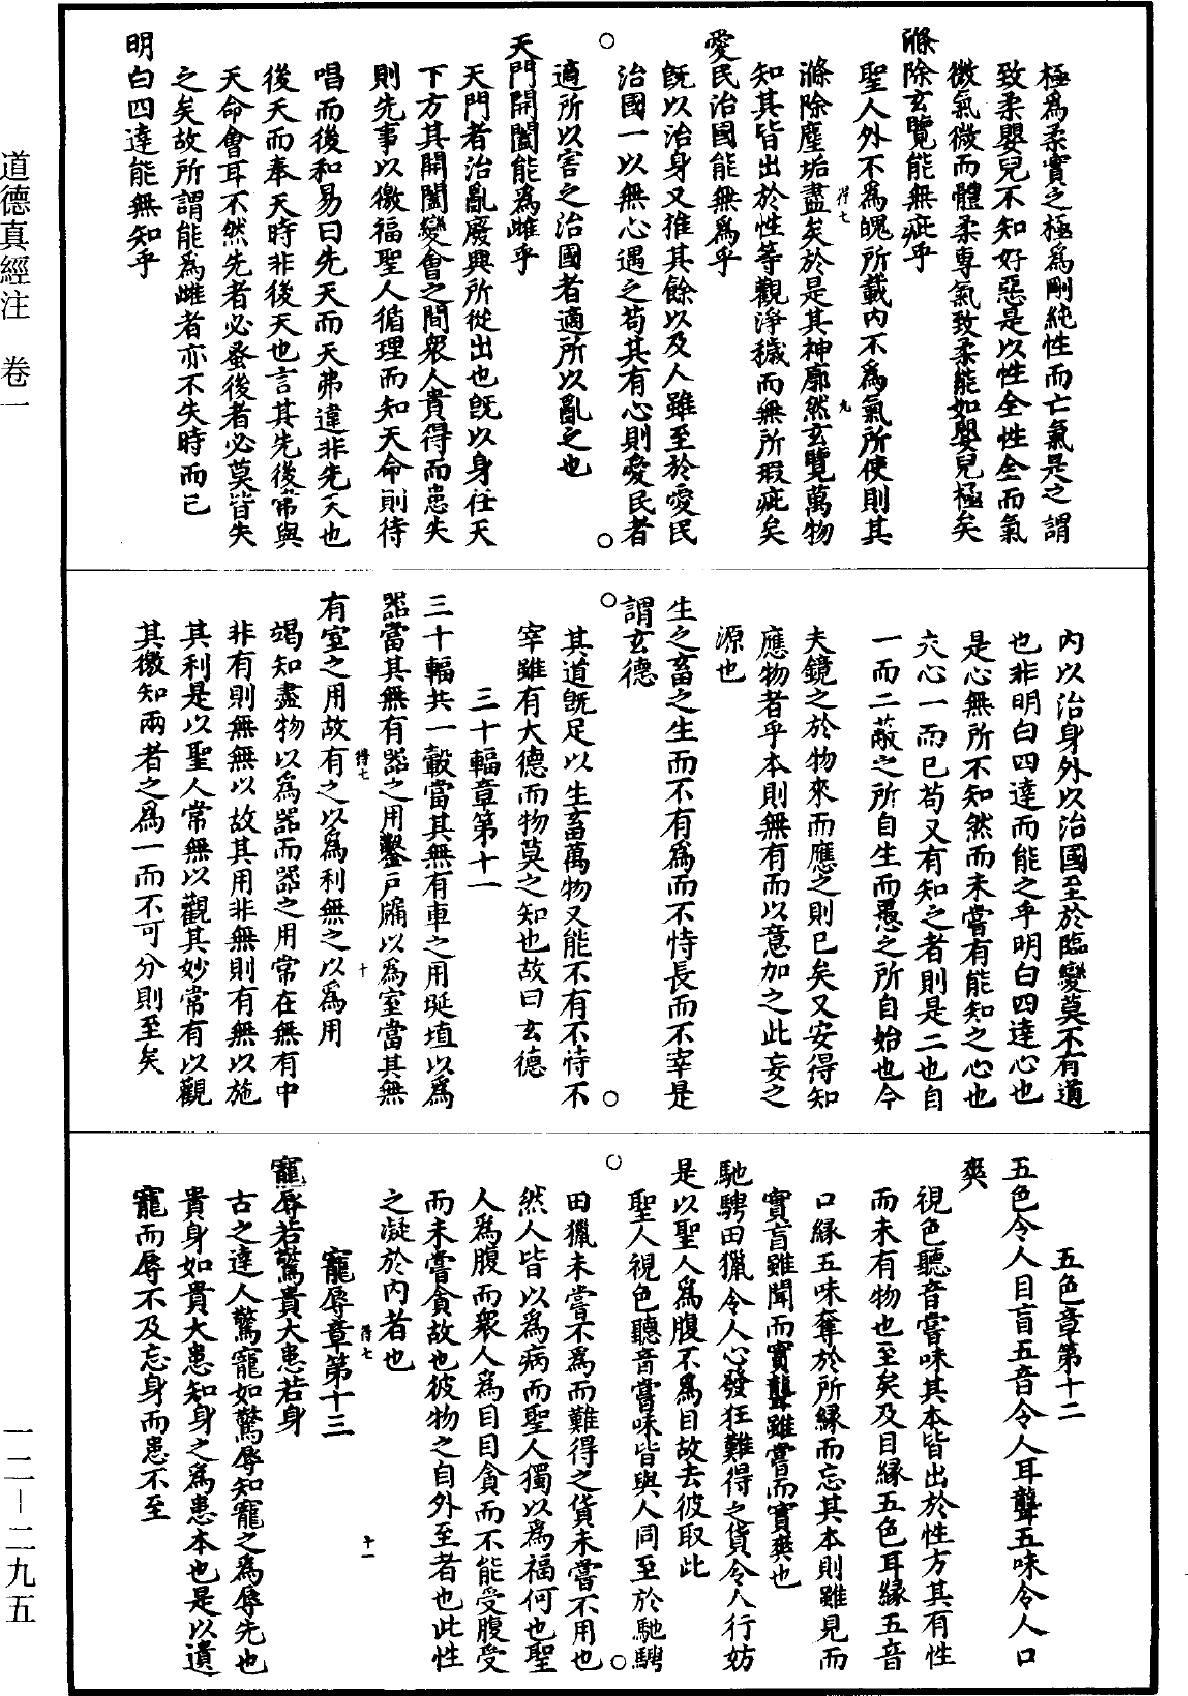 極為柔實之極為剛純性而亡氣是之謂
致柔嬰兒不知好惡是以性全性全而氣
微氣微而體柔專氣致柔能如嬰兒極矣
滌除玄覽能無疵乎
聖人外不為魄所載內不為氣所使則其
滌除塵垢盡矣於是其神廓然玄覽萬物
知其皆出於性等觀淨穢而無所瑕疵矣
愛民治國能無為乎
既以治身又推其餘以及人雖至於愛民
治國一以無心遇之苟其有心則愛民者
適所以害之治國者適所以亂之也
天門開闔能為雌乎
天門者治亂廢興所從出也既以身任天
下方其開闔變會之間衆人貴得而患失
則先事以徼福聖人循理而知天命則待
唱而後和易曰先天而天弗違非先天也
後天而奉天時非後天也言其先後常與
天命會耳不然先者必蚤後者必莫皆失
之矣故所謂能為雌者亦不失時而已
明白四達能無知乎
得七
九
內以治身外以治國至於臨變莫不有道
也非明白四達而能之乎明白四達心也
是心無所不知然而未嘗有能知之心也
夫心一而已苟又有知之者則是二也自
一而二蔽之所自生而愚之所自始也今
夫鏡之於物來而應之則已矣又安得知
應物者乎本則無有而以意加之此妄之
源也
生之畜之生而不有為而不恃長而不宰是
謂玄德
其道既足以生畜萬物又能不有不恃不
宰雖有大德而物莫之知也故曰玄德
三十輻章第十一
三十輻共一轂當其無有車之用埏埴以為
器當其無有器之用鑿戶牖以為室當其無
有室之用故有之以為利無之以為用
得七
十
竭知盡物以為器而器之用常在無有中
非有則無無以故其用非無則有無以施
其利是以聖人常無以觀其妙常有以觀
其徼知兩者之為一而不可分則至矣
五色章第十二
五色令人目盲五音令人耳聾五味令人口
爽
視色聽音嘗味其本皆出於性方其有性
而未有物也至矣及目緣五色耳緣五音
口緣五味奪於所緣而忘其本則雖見而
實盲雖聞而實聾雖嘗而實爽也
馳騁田獵令人心發狂難得之貨令人行妨
是以聖人為腹不為目故去彼取此
聖人視色聽音嘗味皆與人同至於馳騁
田獵未嘗不為而難得之貨未嘗不用也
然人皆以為病而聖人獨以為福何也聖
人為腹而衆人為目目貪而不能受腹受
而未嘗貪故也彼物之自外至者也此性
之凝於內者也
得七
十一
寵辱章第十三
寵辱若驚貴大患若身
古之達人驚寵如驚辱知寵之為辱先也
貴身如貴大患知身之為患本也是以遺
寵而辱不及忘身而患不至
道德真經注　卷一
一二－二九五